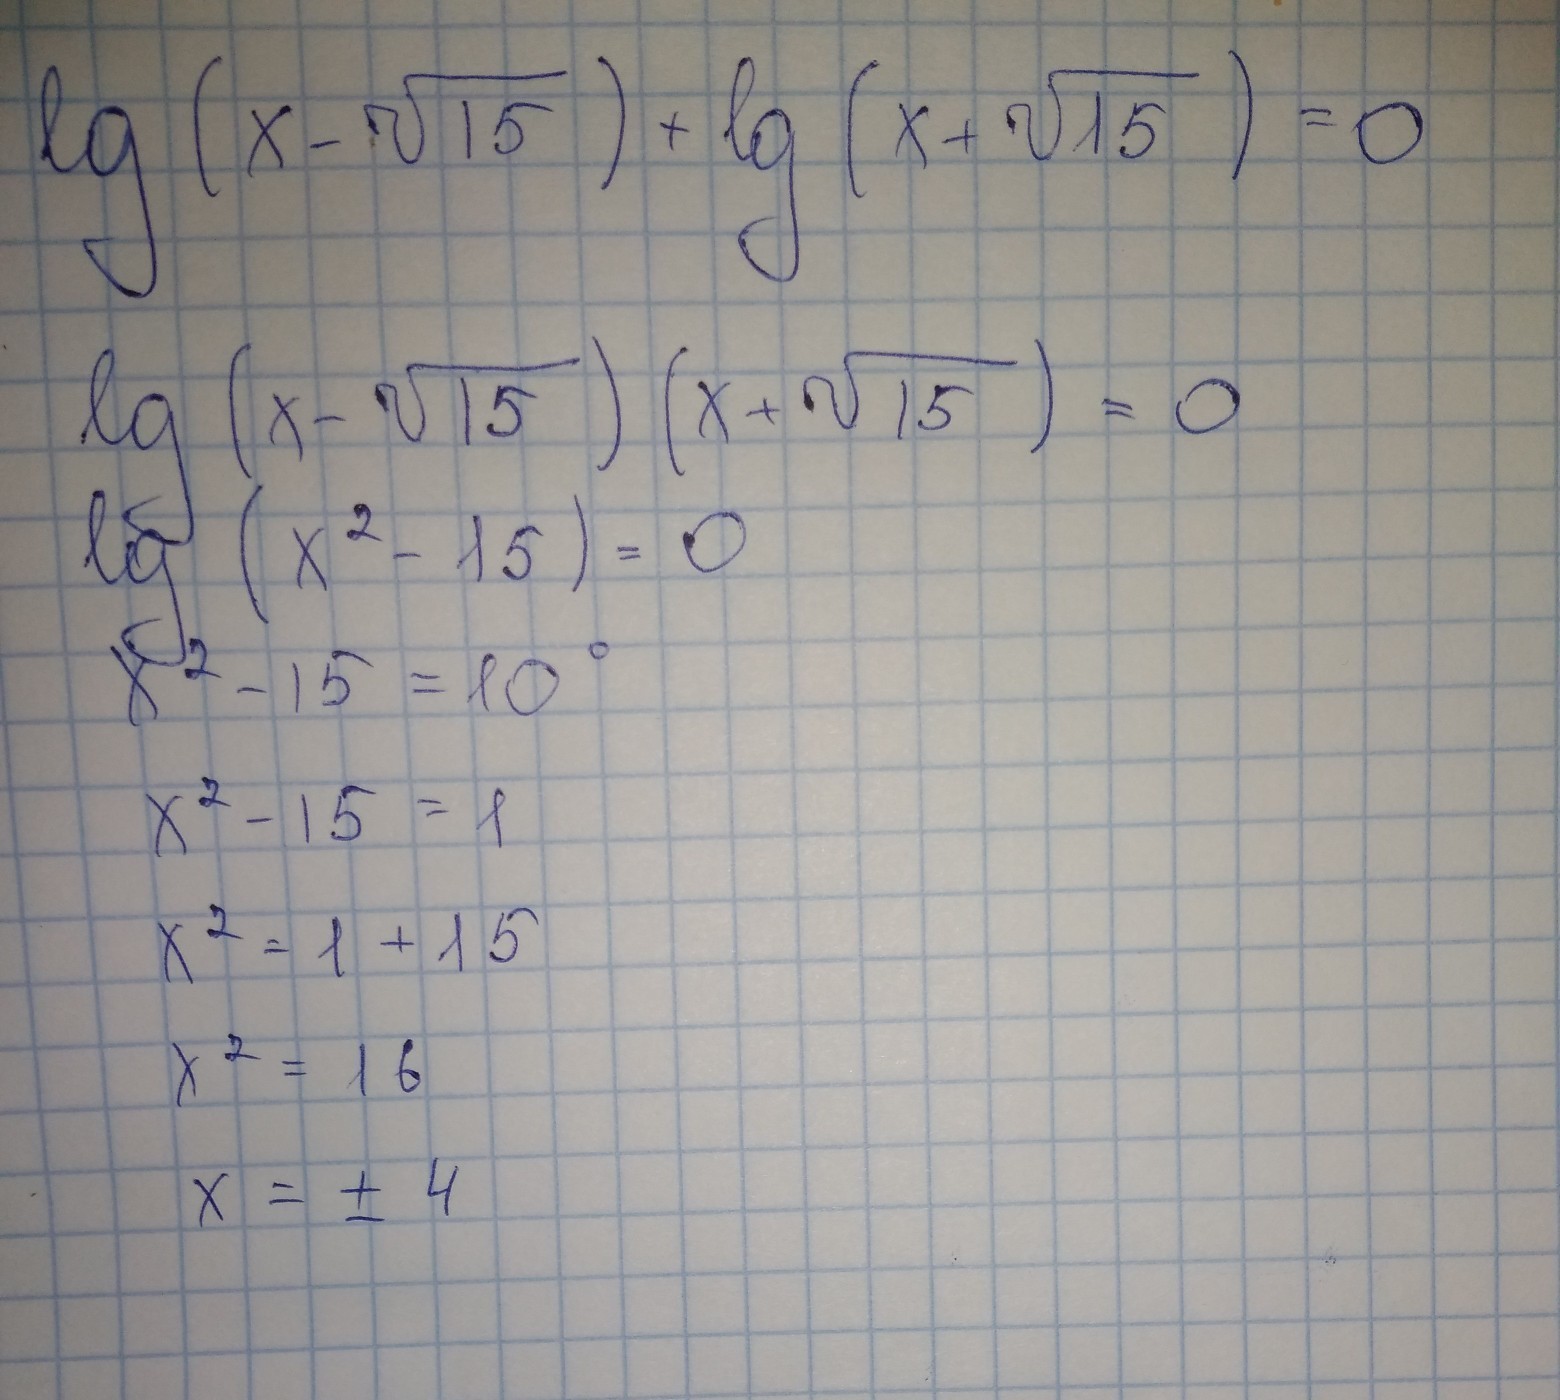 lg (x - √15) + lg (x + √15) = 0
lg (x - √15) (x + √15) = 0
lg (x² - 15) = 0
x² - 15 = 10⁰
x² - 15 = 1
x² = 1 + 15
x² = 16
x = ± 4